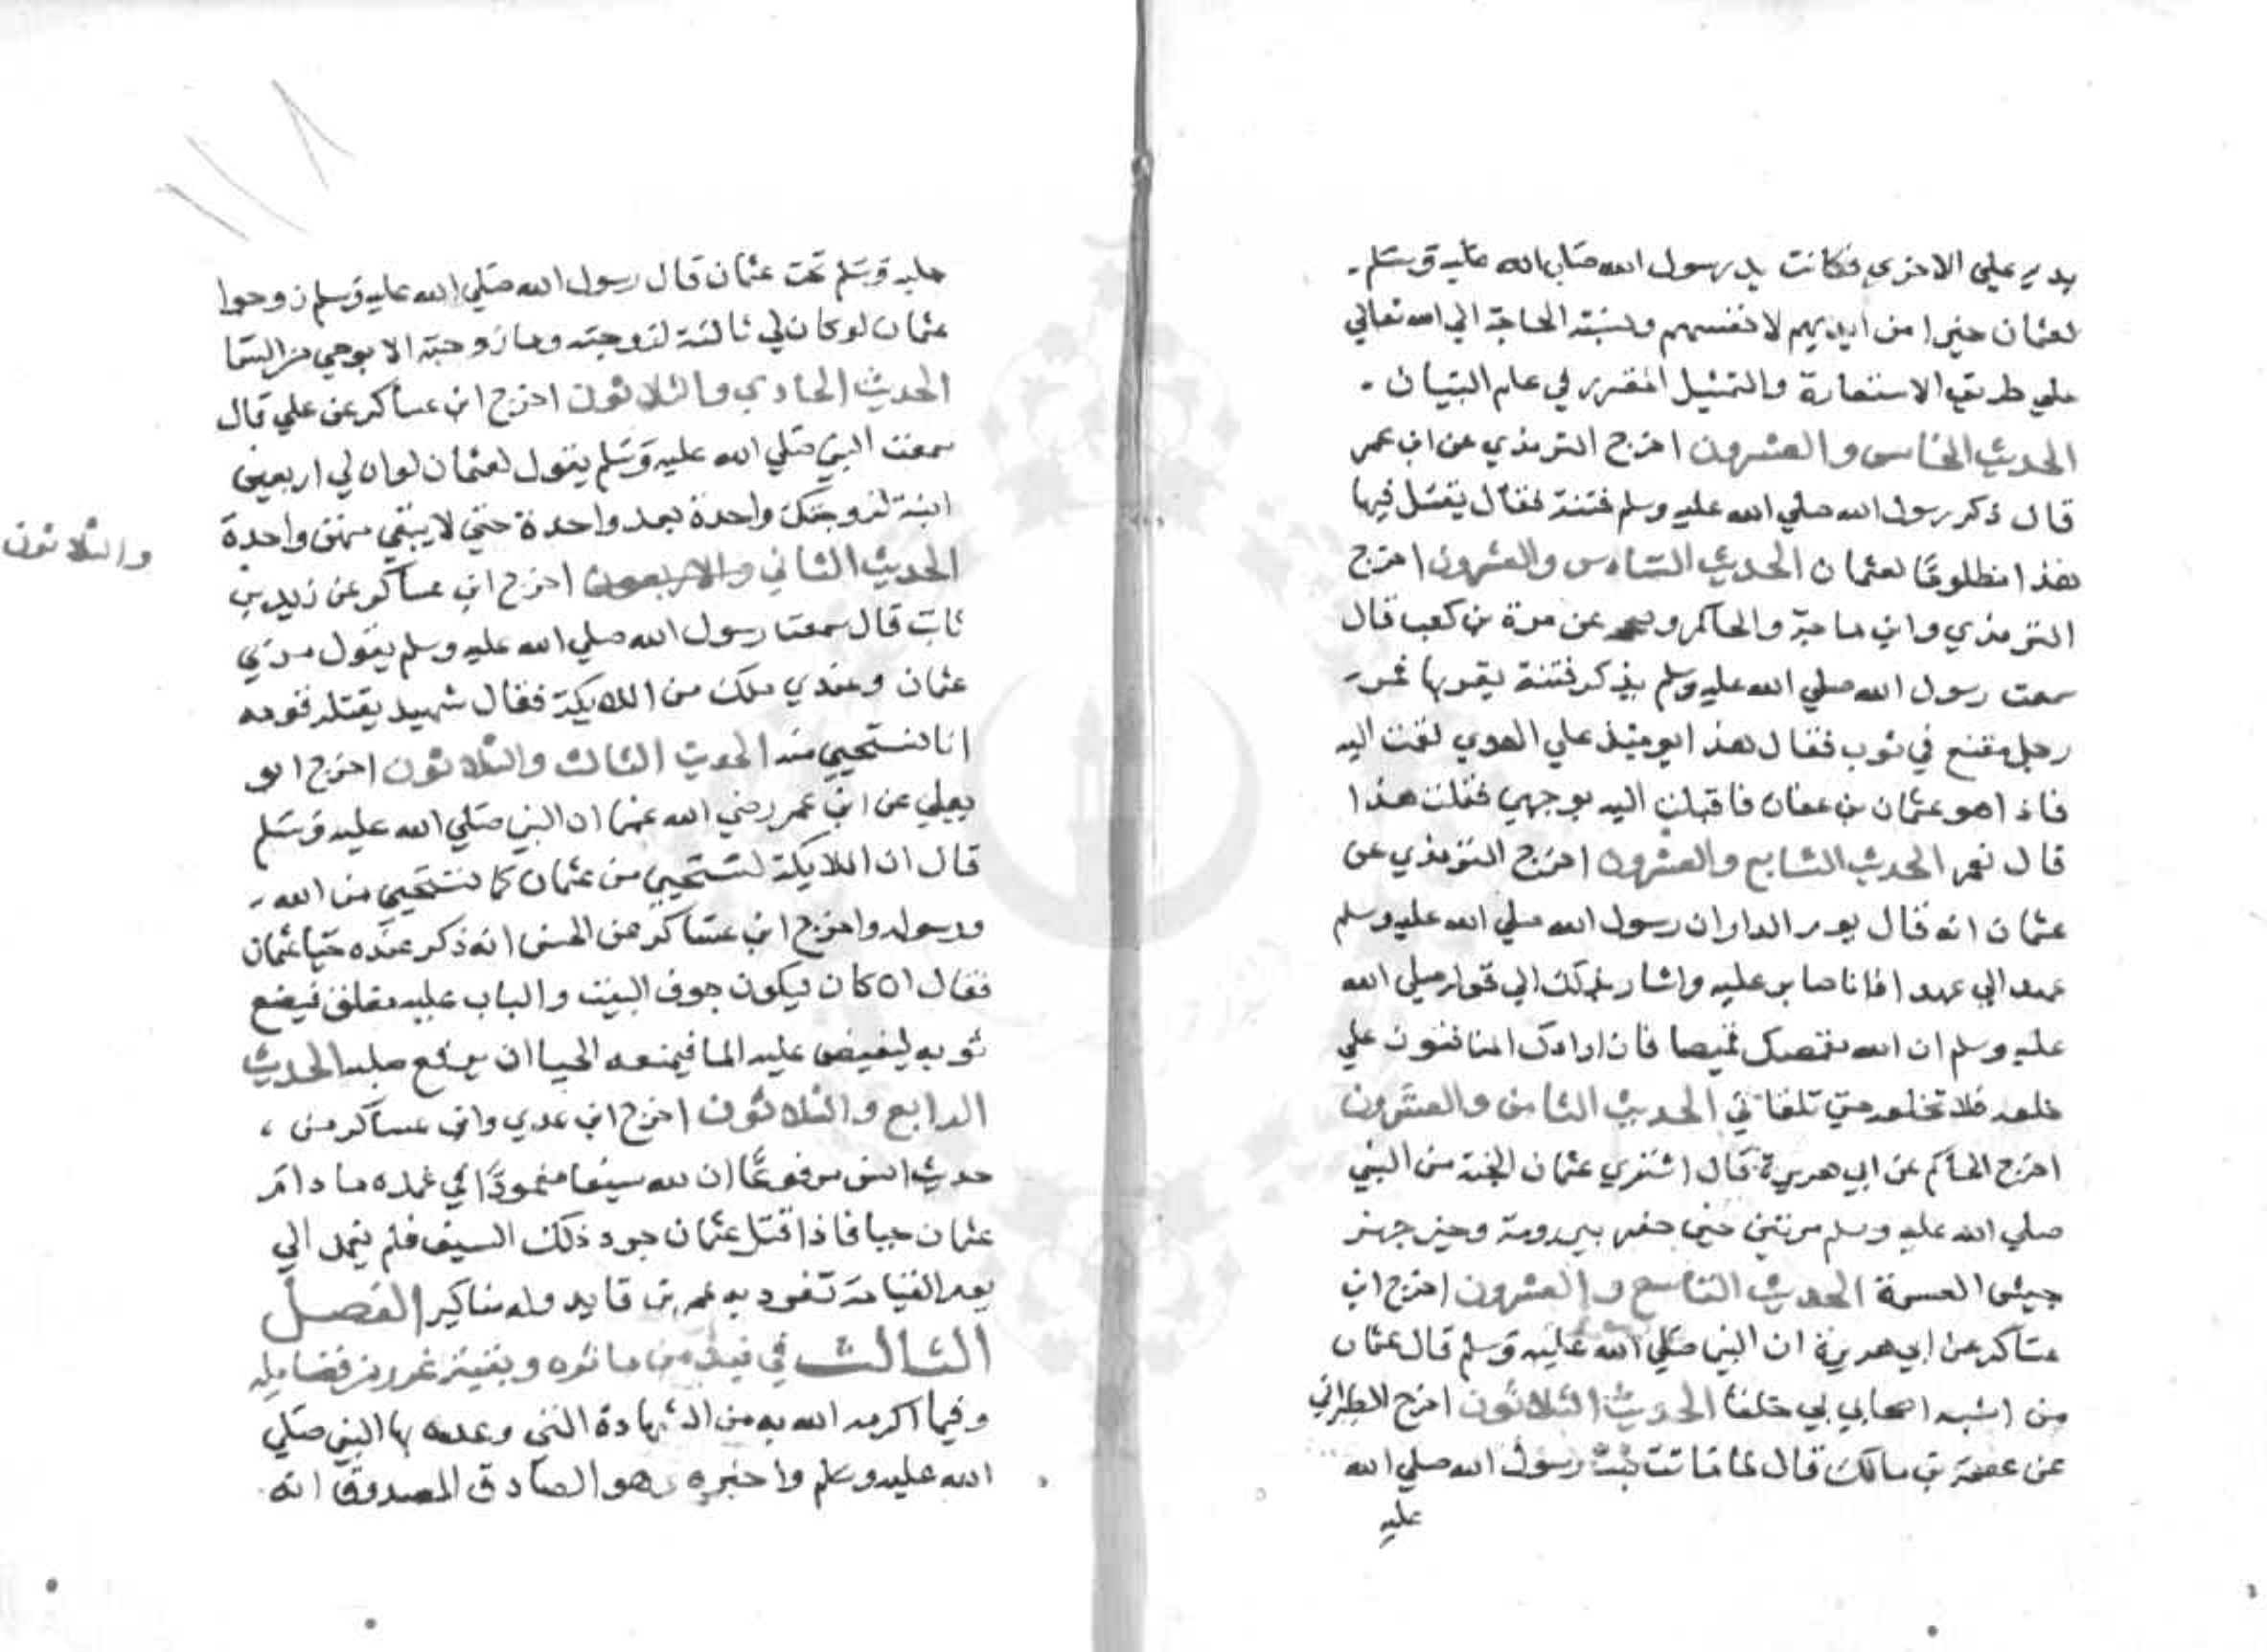 يديه علي الاخري فكانت يد رسول الله صلي الله عليه وسلم
لعثمان خيرا من ايديهم لانفسهم ونسبة الحاجة الي الله تعالي
علي طريق الاستعارة والتمثيل المقرر في علم البيان
الحديث الخامس والعشرون اخرج الترمذي عن ابن عمر
قال ذكر رسول الله صلي الله عليه وسلم فتنة فقال يقتل فيها
هذا مظلوما لعثمان الحديث السادس والعشرون اخرج
الترمذي وابن ماجة والحاكم وصححه عن مرة بن كعب قال
سمعت رسول الله صلي الله عليه وسلم يذكر فتنة يقربها فمر
رجل مقنع في ثوب فقال هذا يوميذ علي الهدي فقمت اليه
فاذا هو عثمان بن عفان فاقبلت اليه بوجهي فقلت هذا
قال نعم الحديث السابع والعشرون اخرج الترمذي عن
عثمان انه قال يوم الدار ان رسول الله صلي الله عليه وسلم
عهد الي عهدا فانا صابر عليه واشار بذلك الي قوله صلي الله
عليه وسلم ان الله مقمصك قميصا فان ارادك المنافقون علي
خلعه فلا تخلعه حتي تلقاني الحديث الثامن والعشرون
اخرج الحاكم عن ابي هريرة قال اشتري عثمان الجنة من النبي
صلي الله عليه وسلم مرتين حين حفر بير رومة وحين جهز
جيش العسرة الحديث التاسع والعشرون اخرج ابن
عساكر عن ابي هريرة ان النبي صلي الله عليه وسلم قال عثمان
من اشبه اصحابي بي خلقا الحديث الثلاثون اخرج الطبراني
عن عصمة بن مالك قال لما ماتت بنت رسول الله صلي الله
عليه
١١٨
عليه وسلم تحت عثمان قال رسول الله صلي الله عليه وسلم زوجوا
عثمان لو كان لي ثالثة لزوجته وما زوجته الا بوحي من السما
الحديث الحادي والثلاثون اخرج ابن عساكر عن علي قال
سمعت النبي صلي الله عليه وسلم يقول لعثمان لو ان لي اربعين
ابنة لزوجتك واحدة بعد واحدة حتي لا يبقي منهن واحدة
الحديث الثاني والاربعون اخرج ابن عساكر عن زيد بن
والثلاثون
ثابت قال سمعت رسول الله صلي الله عليه وسلم يقول مر بي
عثمان وعندي ملك من الملايكة فقال شهيد يقتله قومه
انا لنستحيي منه الحديث الثالث والثلاثون اخرج ابو
يعلي عن ابن عمر رضي الله عنهما ان النبي صلي الله عليه وسلم
قال ان الملايكة لتستحيي من عثمان كما تستحيي من الله
ورسوله واخرج ابن عساكر عن الحسن انه ذكر عنده حيا عثمان
فقال ان كان ليكون جوف البيت والباب عليه مغلق فيضع
ثوبه ليفيض عليه الما فيمنعه الحيا ان يرفع صلبه الحديث
الرابع والثلاثون اخرج ابن عدي وابن عساكر من
حديث انس مرفوعا ان لله سيفا مغمودا في غمده ما دام
عثمان حيا فاذا قتل عثمان جرد ذلك السيف فلم يغمد الي
يوم القيامة تفرد به عمرو بن قايد وله مناكير الفصل
الثالث في نبذ من ماثره وبقية غرر من فضايله
وفيما اكرمه الله به من الشهادة التي وعده بها النبي صلي
الله عليه وسلم واخبره وهو الصادق المصدوق انه